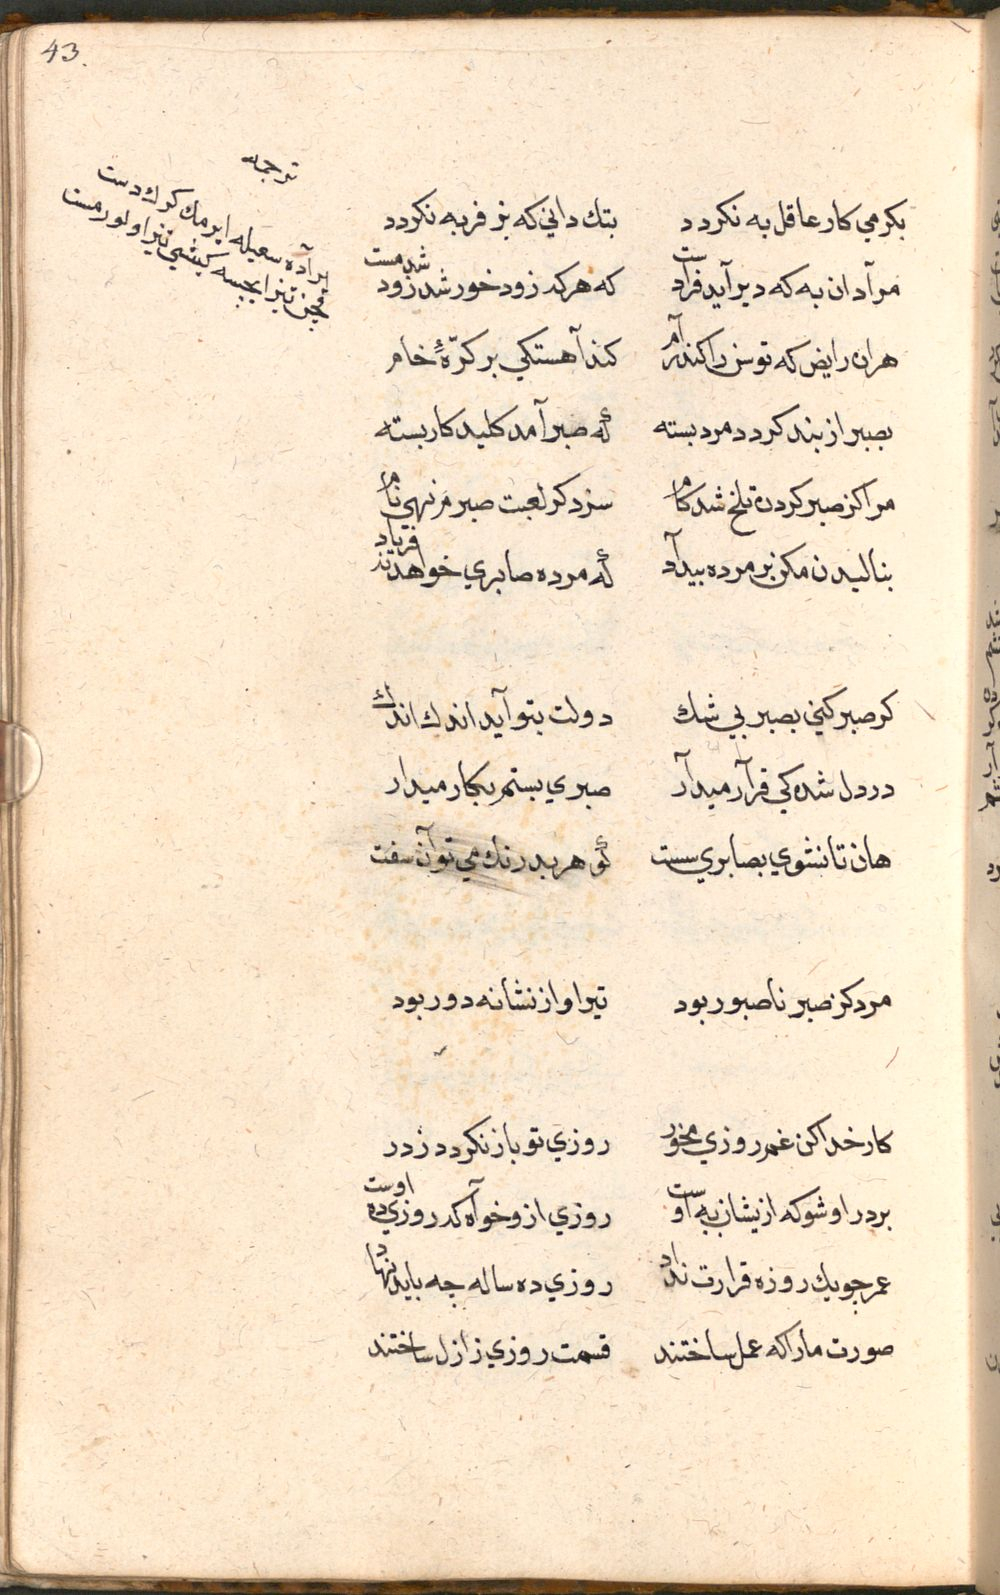 43.
ترجمه
ایر آده سعیله ایرمك كرك دست
قچن تیز ایچسه كیشي تیز اولور مست
بكرمي كار عاقل به نكردد بتك داني كه بز فربه نكردد
مرآد ان به كه دیر آید فرادست كه هركه زود خور شد زود شد مست
هران رایض كه توسن را كند رآم كند آهستكي بر كرّهٔ خام
بصبر از بند كردد مرد بسته كه صبر آمد كلید كار بسته
مرا كز صبر كردن تلخ شد كام سزد كر لعبت صبرم نهي نام
بنالیدن مكن بر مرده بیدآد كه مرده صابري خواهد نه فریاد
كر صبر كني بصبر بي شك دولت بتو آید اندك اندك
در دل شده كي قرآر میدآر صبري بستم بكار میدار
هان تا نشوي بصابري سست كوهر بدرنك مي توآن سفت
مرد كز صبر ناصبور بود تیر او از نشانه دور بود
كار خدا كن غم روزي مخور روزي تو باز نكردد ز در
بر در او شو كه ازیشان به اوست روزي ازو خوآه كه روزي ده اوست
عمر چو یك روزه قرارت نداد روزي ده ساله چه باید نهاد
صورت ما را كه عمل ساختند قسمت روزي ز ازل ساختند